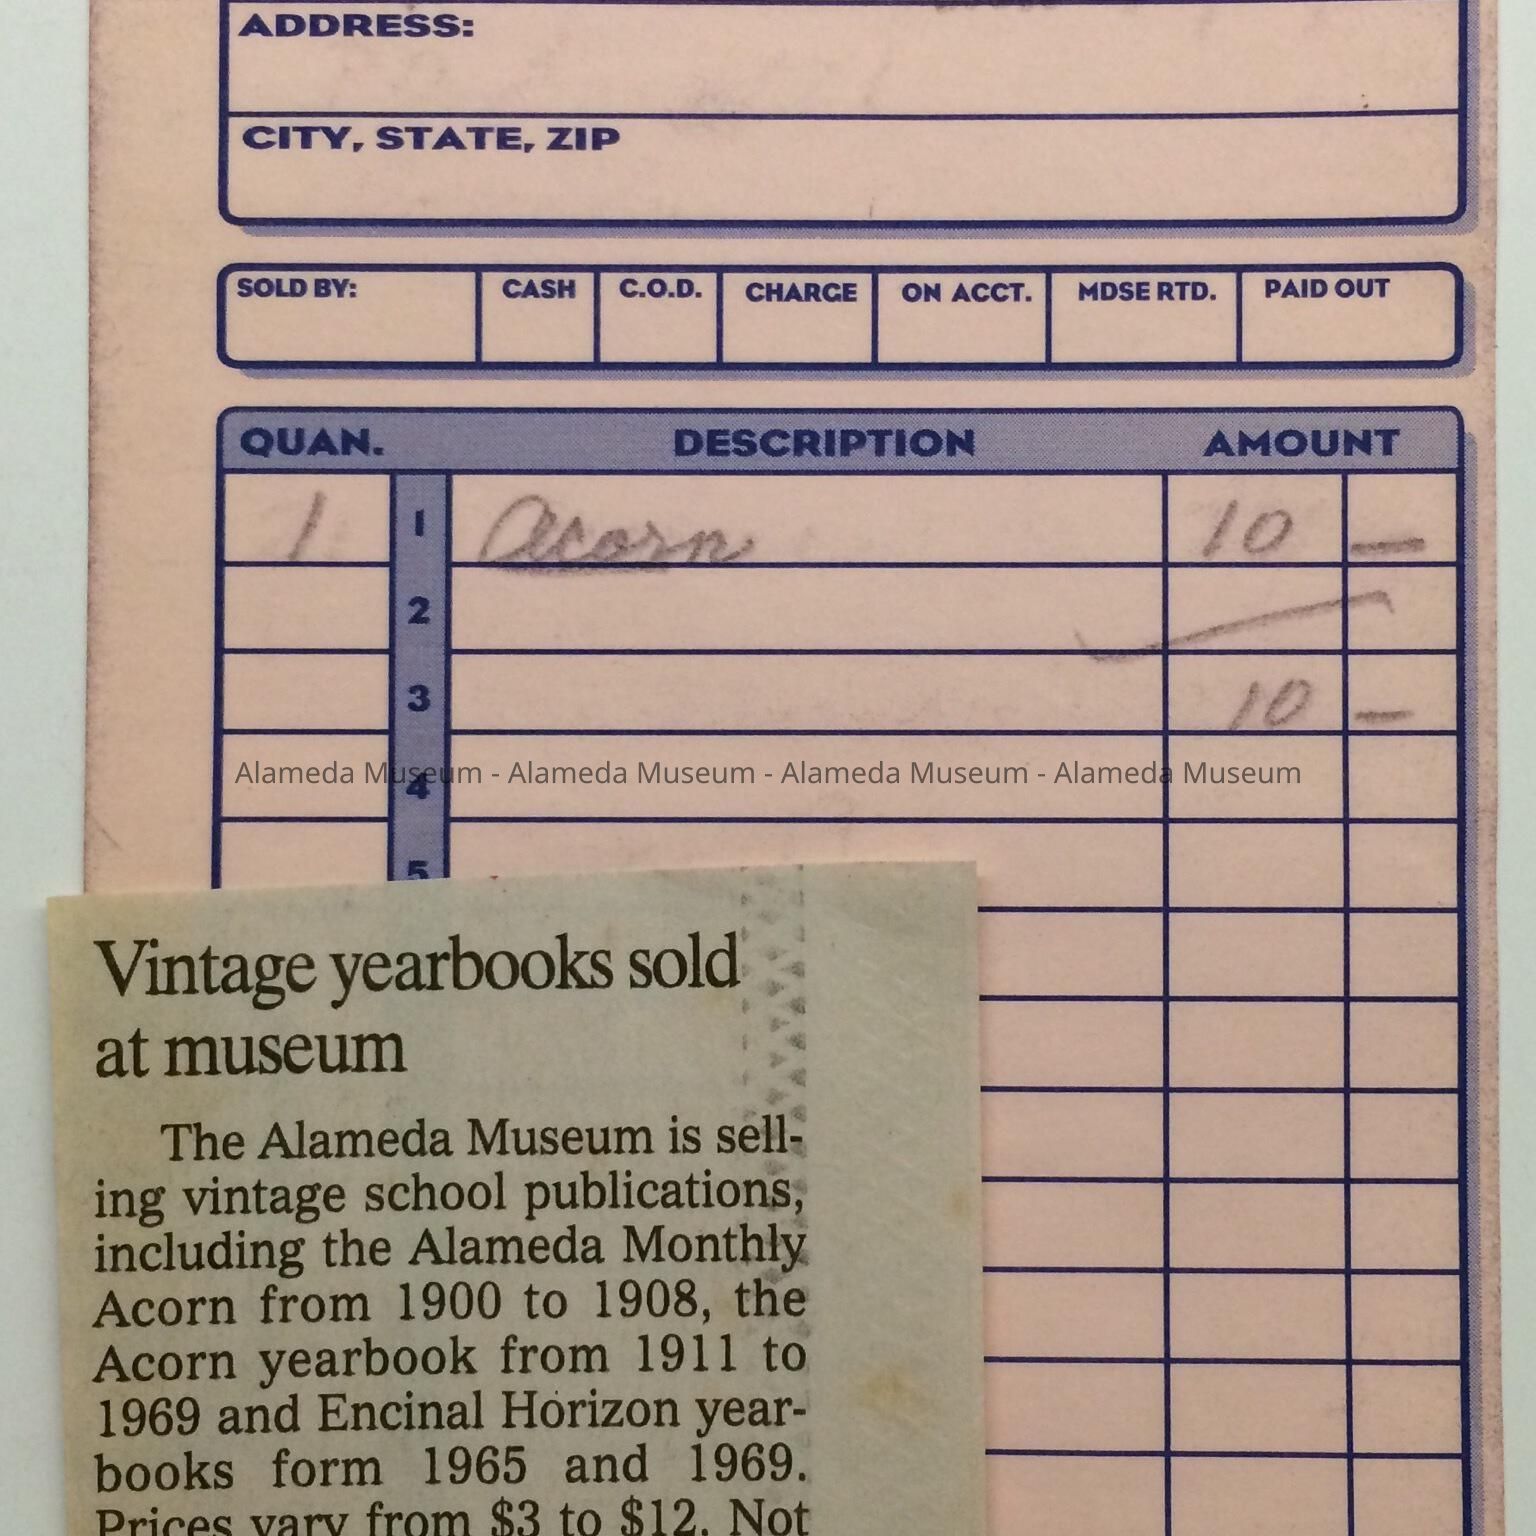 ADDRESS:
CITY, STATE, ZIP
SOLD BY: CASH C.O.D. CHARGE ON ACCT. MDSE RTD. PAID OUT
QUAN. DESCRIPTION AMOUNT
1 1 Acorn 10 —
2
3 10 —
4
Alameda Museum - Alameda Museum - Alameda Museum - Alameda Museum
5
Vintage yearbooks sold
at museum
The Alameda Museum is sell-
ing vintage school publications,
including the Alameda Monthly
Acorn from 1900 to 1908, the
Acorn yearbook from 1911 to
1969 and Encinal Horizon year-
books form 1965 and 1969.
Prices vary from $3 to $12. Not